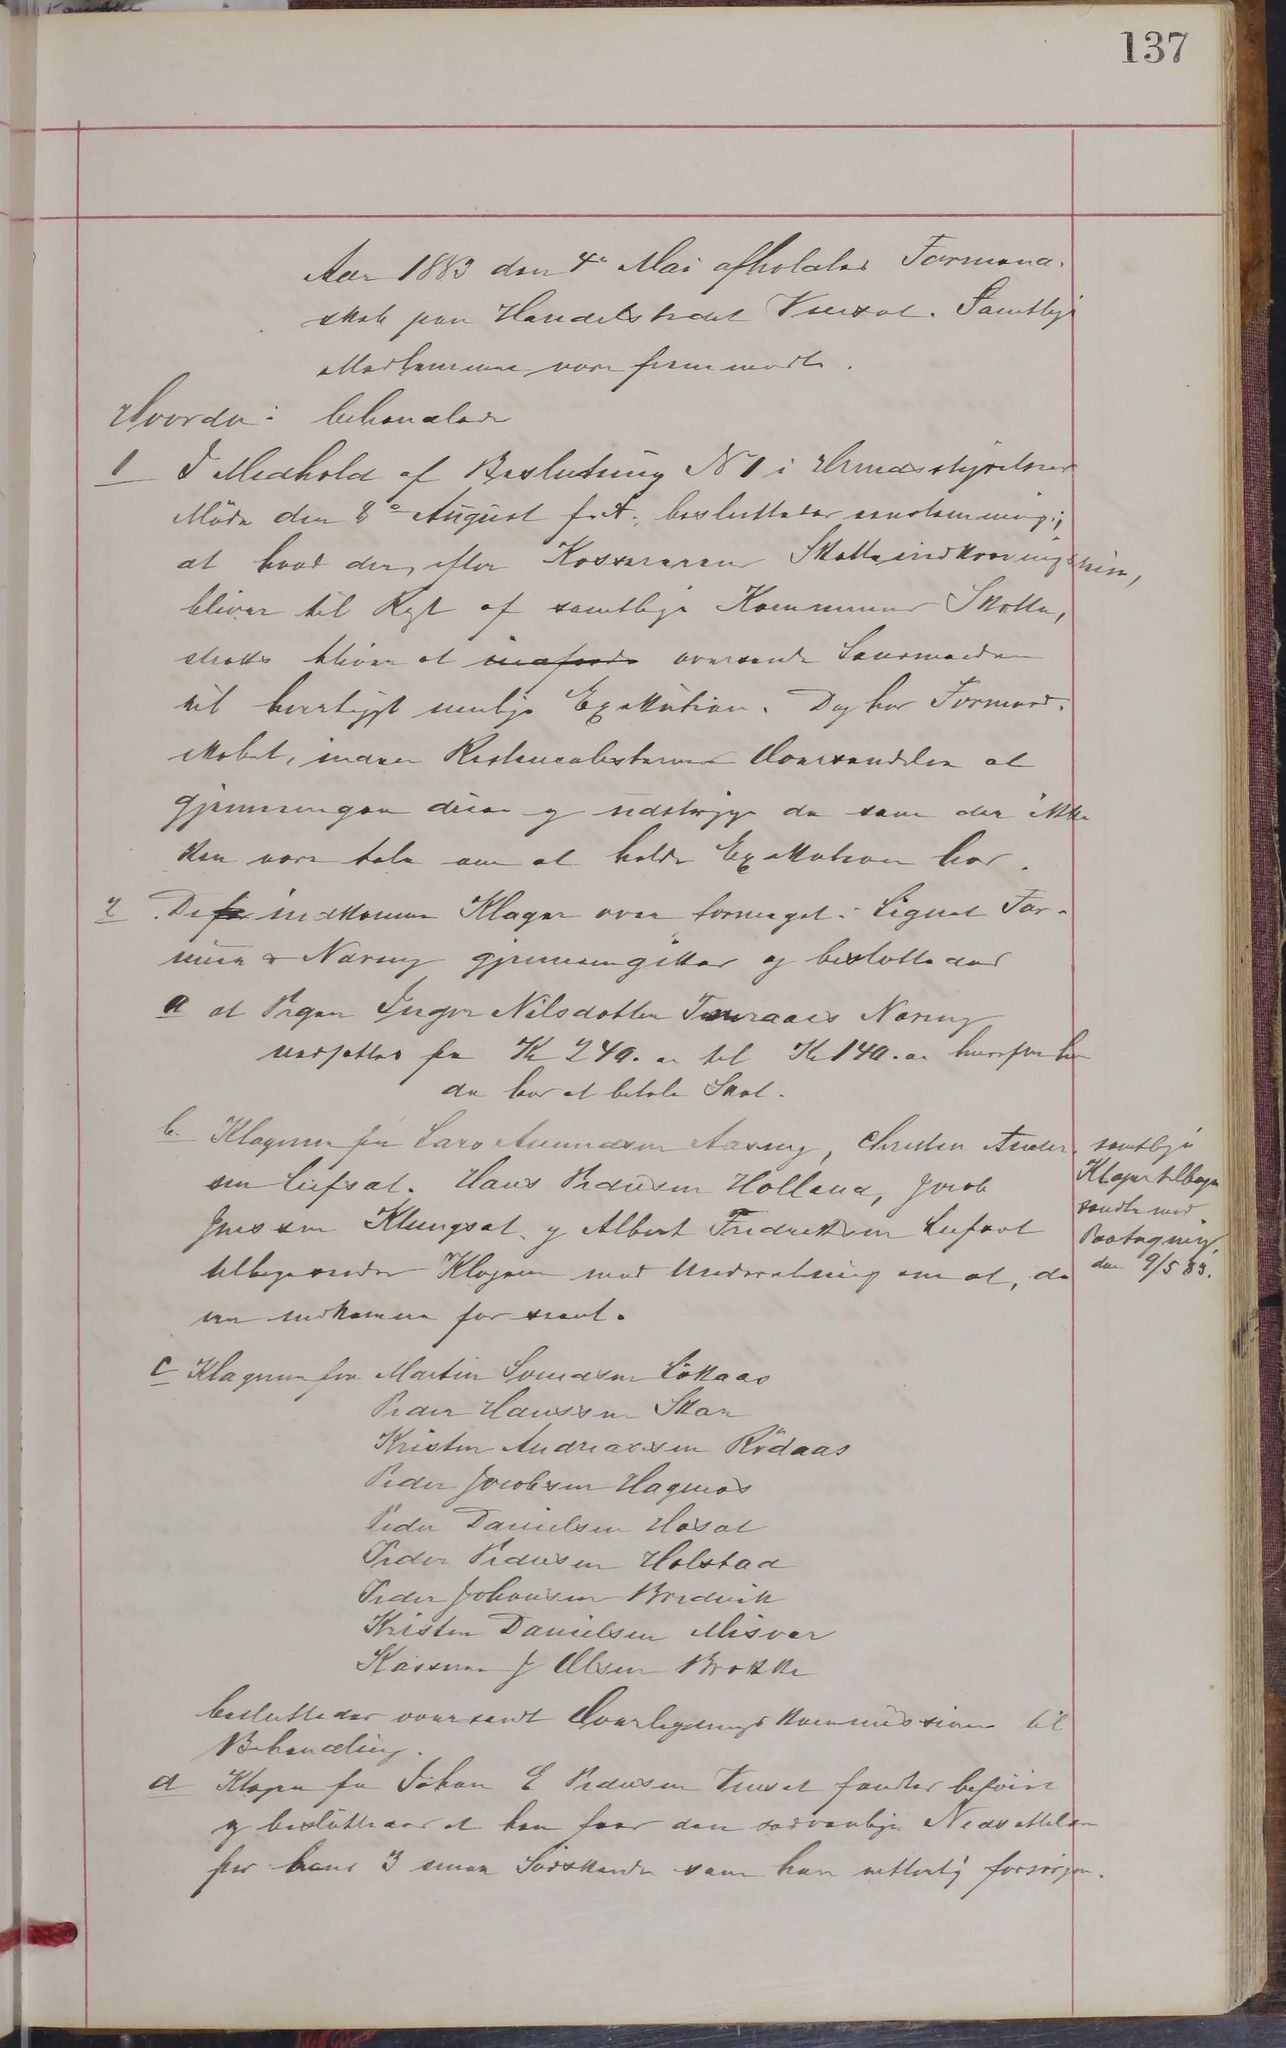 137
Aar 1883 den 4de Mai afholdtes Formand-
skab paa Handelstedet Venset. Samtlige
Medlemmer vare fremmødte.
Hvorda: behandledes
1 I Medhold af Beslutning N 1 i Herredsstyrelsens
Möde den 8de August f.A. besluttedes eenstemmig;
at hvad der, efter Kassererens Skatteindkrævning
bliver til Rest af samtlige Kommunens Skatte,
straks bliver at indføres oversende Lensmanden
til
Exekution. Dog har Formand-
skabet, inden Restancelisternes Oversendelse at
gjennemgaa disse og udstryge de som der ikke
kan være tale om at holde Exekution hos.
2 De fra indkomne Klager over formeget Lignet For-
mue & Næring gjennemgikkes og besluttedes
a at Pigen Inger Nilsdatter Næring
nedsættes fra Kr 240. til Kr 140.
da har at betale Skat.
b. Klagerne fra Lars Amundsen Aaseng, Christen Ander-
sen Leifset. Hans Pedersen Holland, Jacob
Jensen Klungset og Albert Fredriksen Leifset
tilbagesendes Klagerne med Underretning om at, de
ere indkomne for seent.
samtlige
Klager tilbage
sendte med
Paategning
den 9/5 83.
c Klagerne fra Martin Svendsen Lökaas
Peder Hanssen Skar
Kristen Andreassen Rödaas
Peder Jacobsen Hagenæs
Peder Danielsen Høset
Peder Pedersen Holstad
Peder Johansen Bredvik
Kristen Danielsen Misvær
Kasserer J Olsen Brække
besluttedes oversendt Overligningskommissionen til
Behandling.
d Klagen fra Johan E Pedersen Venset fandtes beföiet
og besluttedes at han faar den sædvanlige Nedsættelse
for hans 3 smaa Södskende som han forsörger.